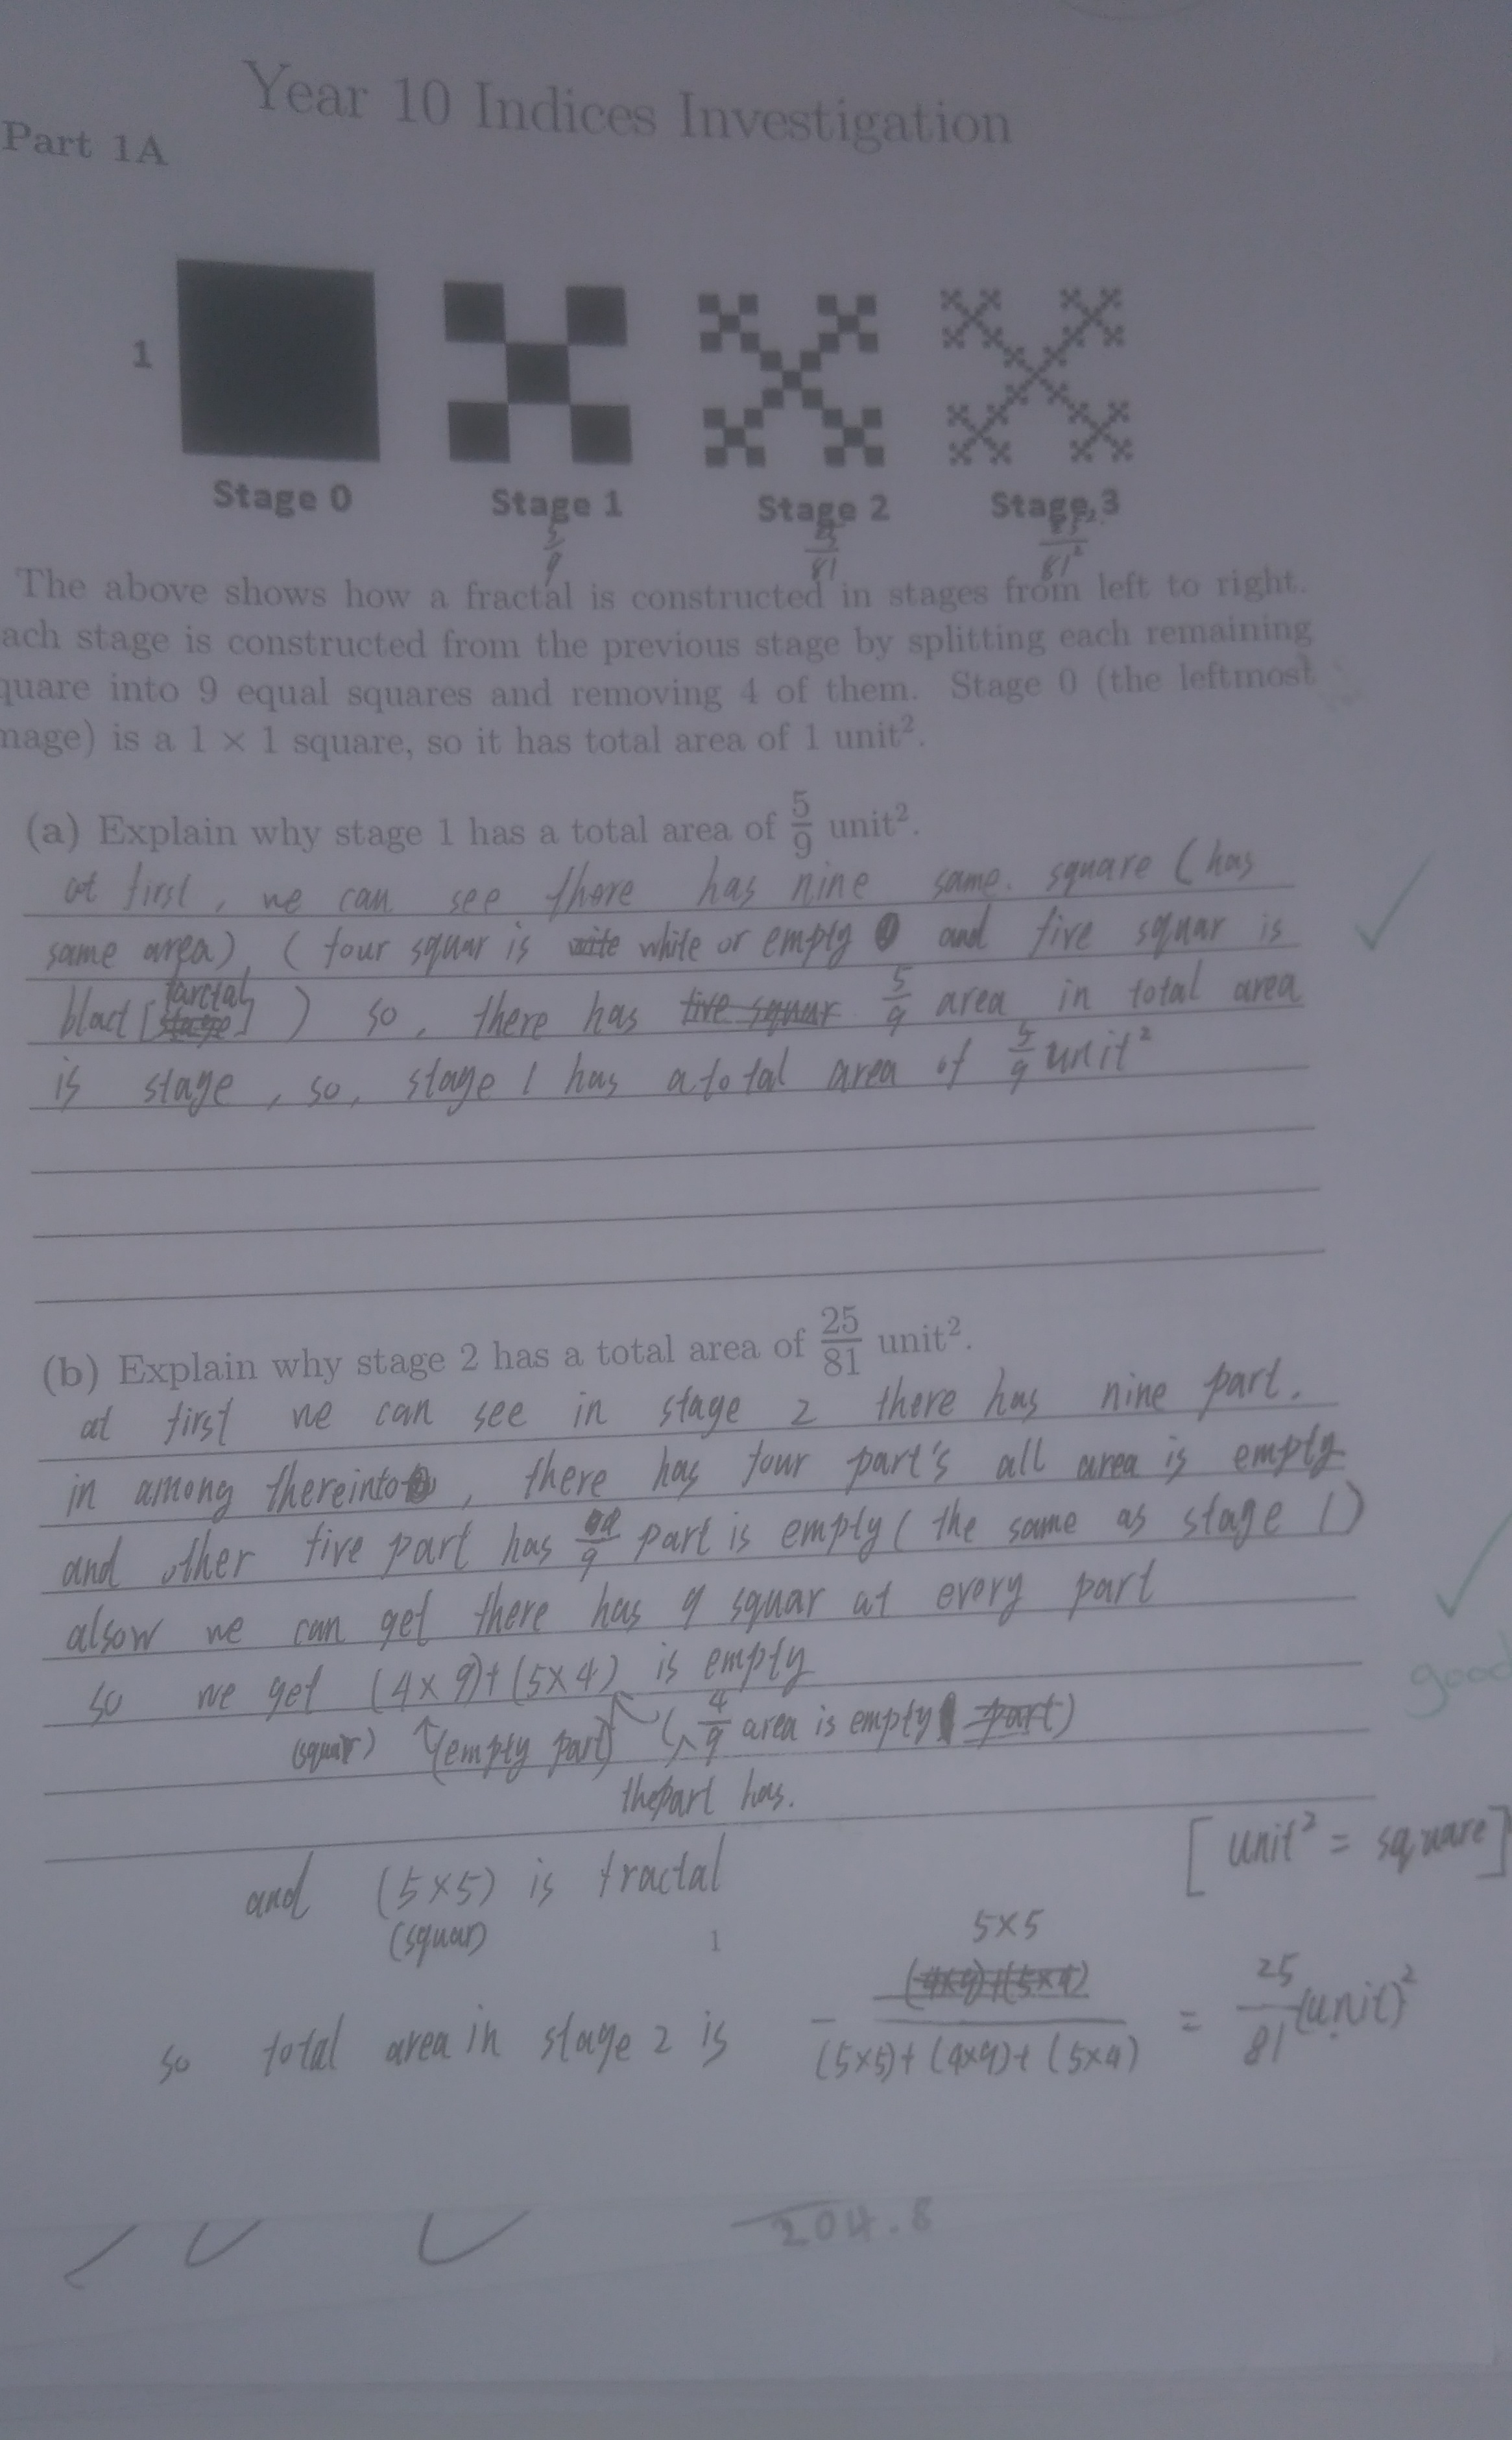 Year 10 Indices Investigation
Part 1A
1
Stage 0 Stage 1 Stage 2 Stage 3
5/9 25/81 /81²
The above shows how a fractal is constructed in stages from left to right.
ach stage is constructed from the previous stage by splitting each remaining
quare into 9 equal squares and removing 4 of them. Stage 0 (the leftmost
mage) is a 1 × 1 square, so it has total area of 1 unit².
(a) Explain why stage 1 has a total area of 5/9 unit².
at first, we can see there has nine same. square (has
same area), (four squar is white or empty and five squar is
blact [farctal] ) so, there has five squar 5/9 area in total area
is stage, so, stage 1 has a total area of 5/9 unit²
(b) Explain why stage 2 has a total area of 25/81 unit².
at first we can see in stage 2 there has nine part.
in among thereinto, there has four part's all area is empty
and other five part has /9 part is empty (the same as stage 1)
alsow we can get there has 9 squar at every part
so we get (4×9)+(5×4) is empty
(squar) (empty part) ( 4/9 area is empty part)
the part has.
[unit² = square]
and (5×5) is fractal
(squar)
1
5×5
(4×9)+(5×4)
so total area in stage 2 is (5×5)+(4×9)+(5×4) = 25/81 (unit)²
good
204.8